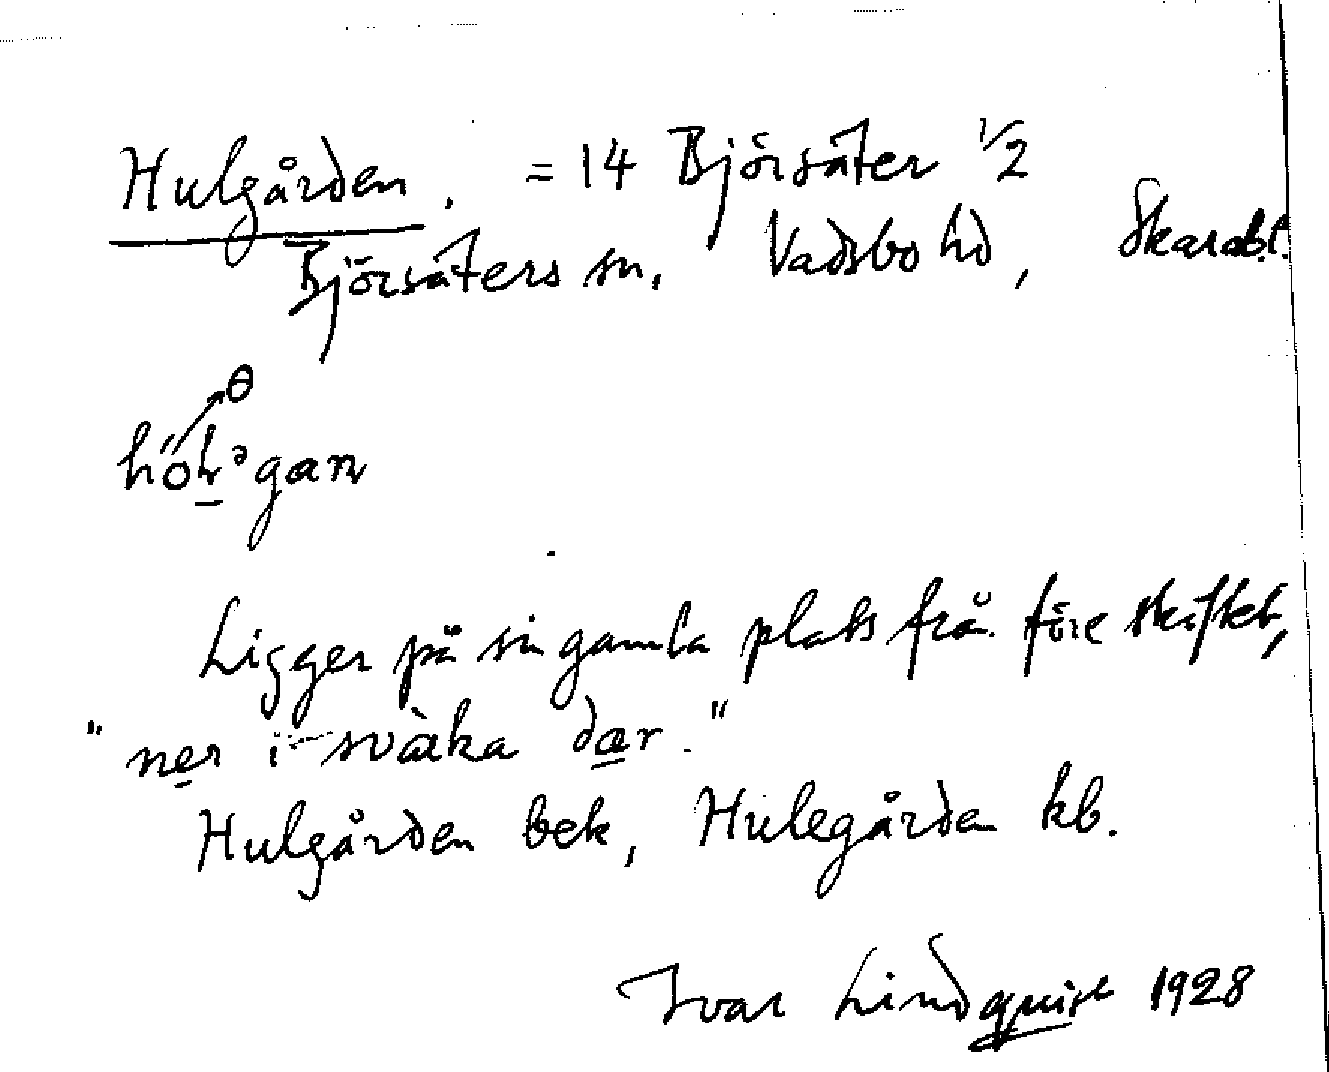 Hulgården. = 14 Björsäter 1/2
Björsäters sn. Vadsbo hd, Skarab.l.
Ligger på sin gamla plats från före skiftet,
"ner i svàka dær."
Hulgården bek, Hulegården kb.
Ivar Lindquist 1928